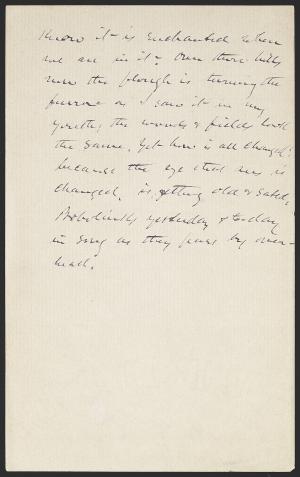 know it is enchanted when
we are in it. Over those hills
now the plough is turning the
furrow as I saw it in my
youth; the woods & fields look
the same. Yet how is all changed!
because the eye that sees is
changed, is getting old & sated.
Bobolinks yesterday & to-day
in song as they pass by over-
head.